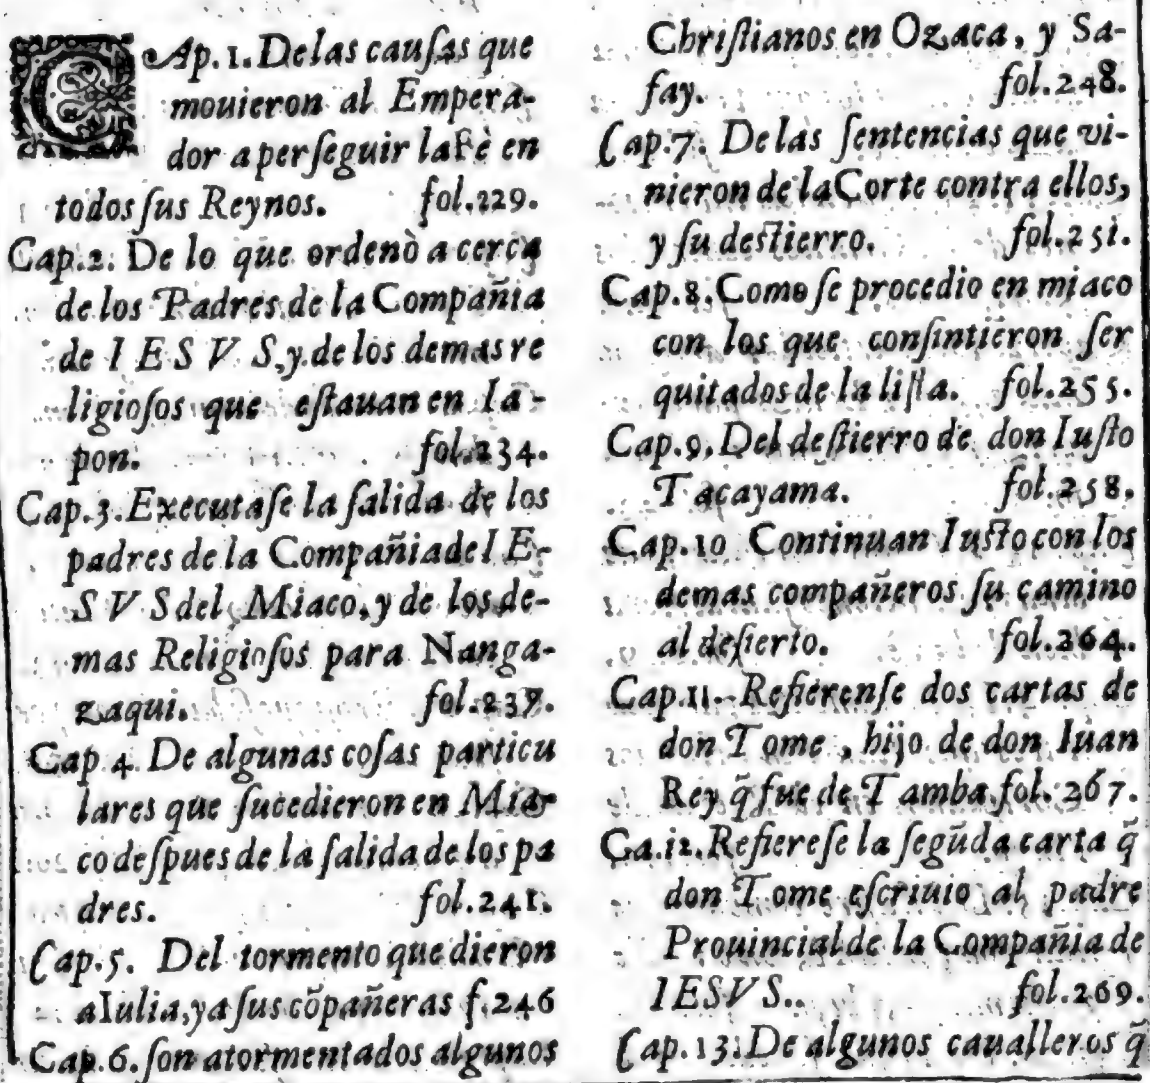 CAp. 1. De las cauſas que
mouieron al Empera-
dor a perſeguir la Fè en
todos ſus Reynos. fol.229.
Cap.2. De lo que ordenò a cerca
de los Padres de la Compañia
de IESVS, y de los demas re
ligioſos que eſtauan en Ia-
pon. fol.234.
Cap.3. Executaſe la ſalida de los
padres de la Compañia de IE-
SVS del Miaco, y de los de-
mas Religioſos para Nanga-
zaqui. fol.237.
Cap 4. De algunas coſas particu
lares que ſucedieron en Mia-
co deſpues de la ſalida de los pa
dres. fol.241.
Cap.5. Del tormento que dieron
a Iulia, y a ſus cõpañeras f.246
Cap.6. ſon atormentados algunos
Chriſtianos en Ozaca, y Sa-
ſay. fol.248.
Cap.7. De las ſentencias que vi-
nieron de la Corte contra ellos,
y ſu deſtierro. fol.251.
Cap.8. Como ſe procedio en miaco
con los que conſintieron ſer
quitados de la liſta. fol.255.
Cap.9. Del deſtierro de don Iuſto
Tacayama. fol.258.
Cap.10 Continuan Iuſto con los
demas compañeros ſu camino
al deſierto. fol.264.
Cap.11. Refierenſe dos cartas de
don Tome, hijo de don Iuan
Rey q̃ fue de Tamba. fol.267.
Ca.12. Refiereſe la ſegũda carta q̃
don Tome eſcriuio al padre
Prouincial de la Compañia de
IESVS.. fol.269.
Cap.13. De algunos caualleros q̃